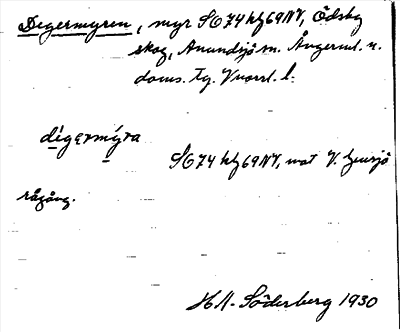 Degermyren, myr S674 h769NV, Ödsby
skog, Anundsjö sn. Ångerml. n.
doms. tg. Vnorrl. l.
dígermýra
S674 h769NV, mot V. Gensjö
rågång.
HN. Söderberg 1930